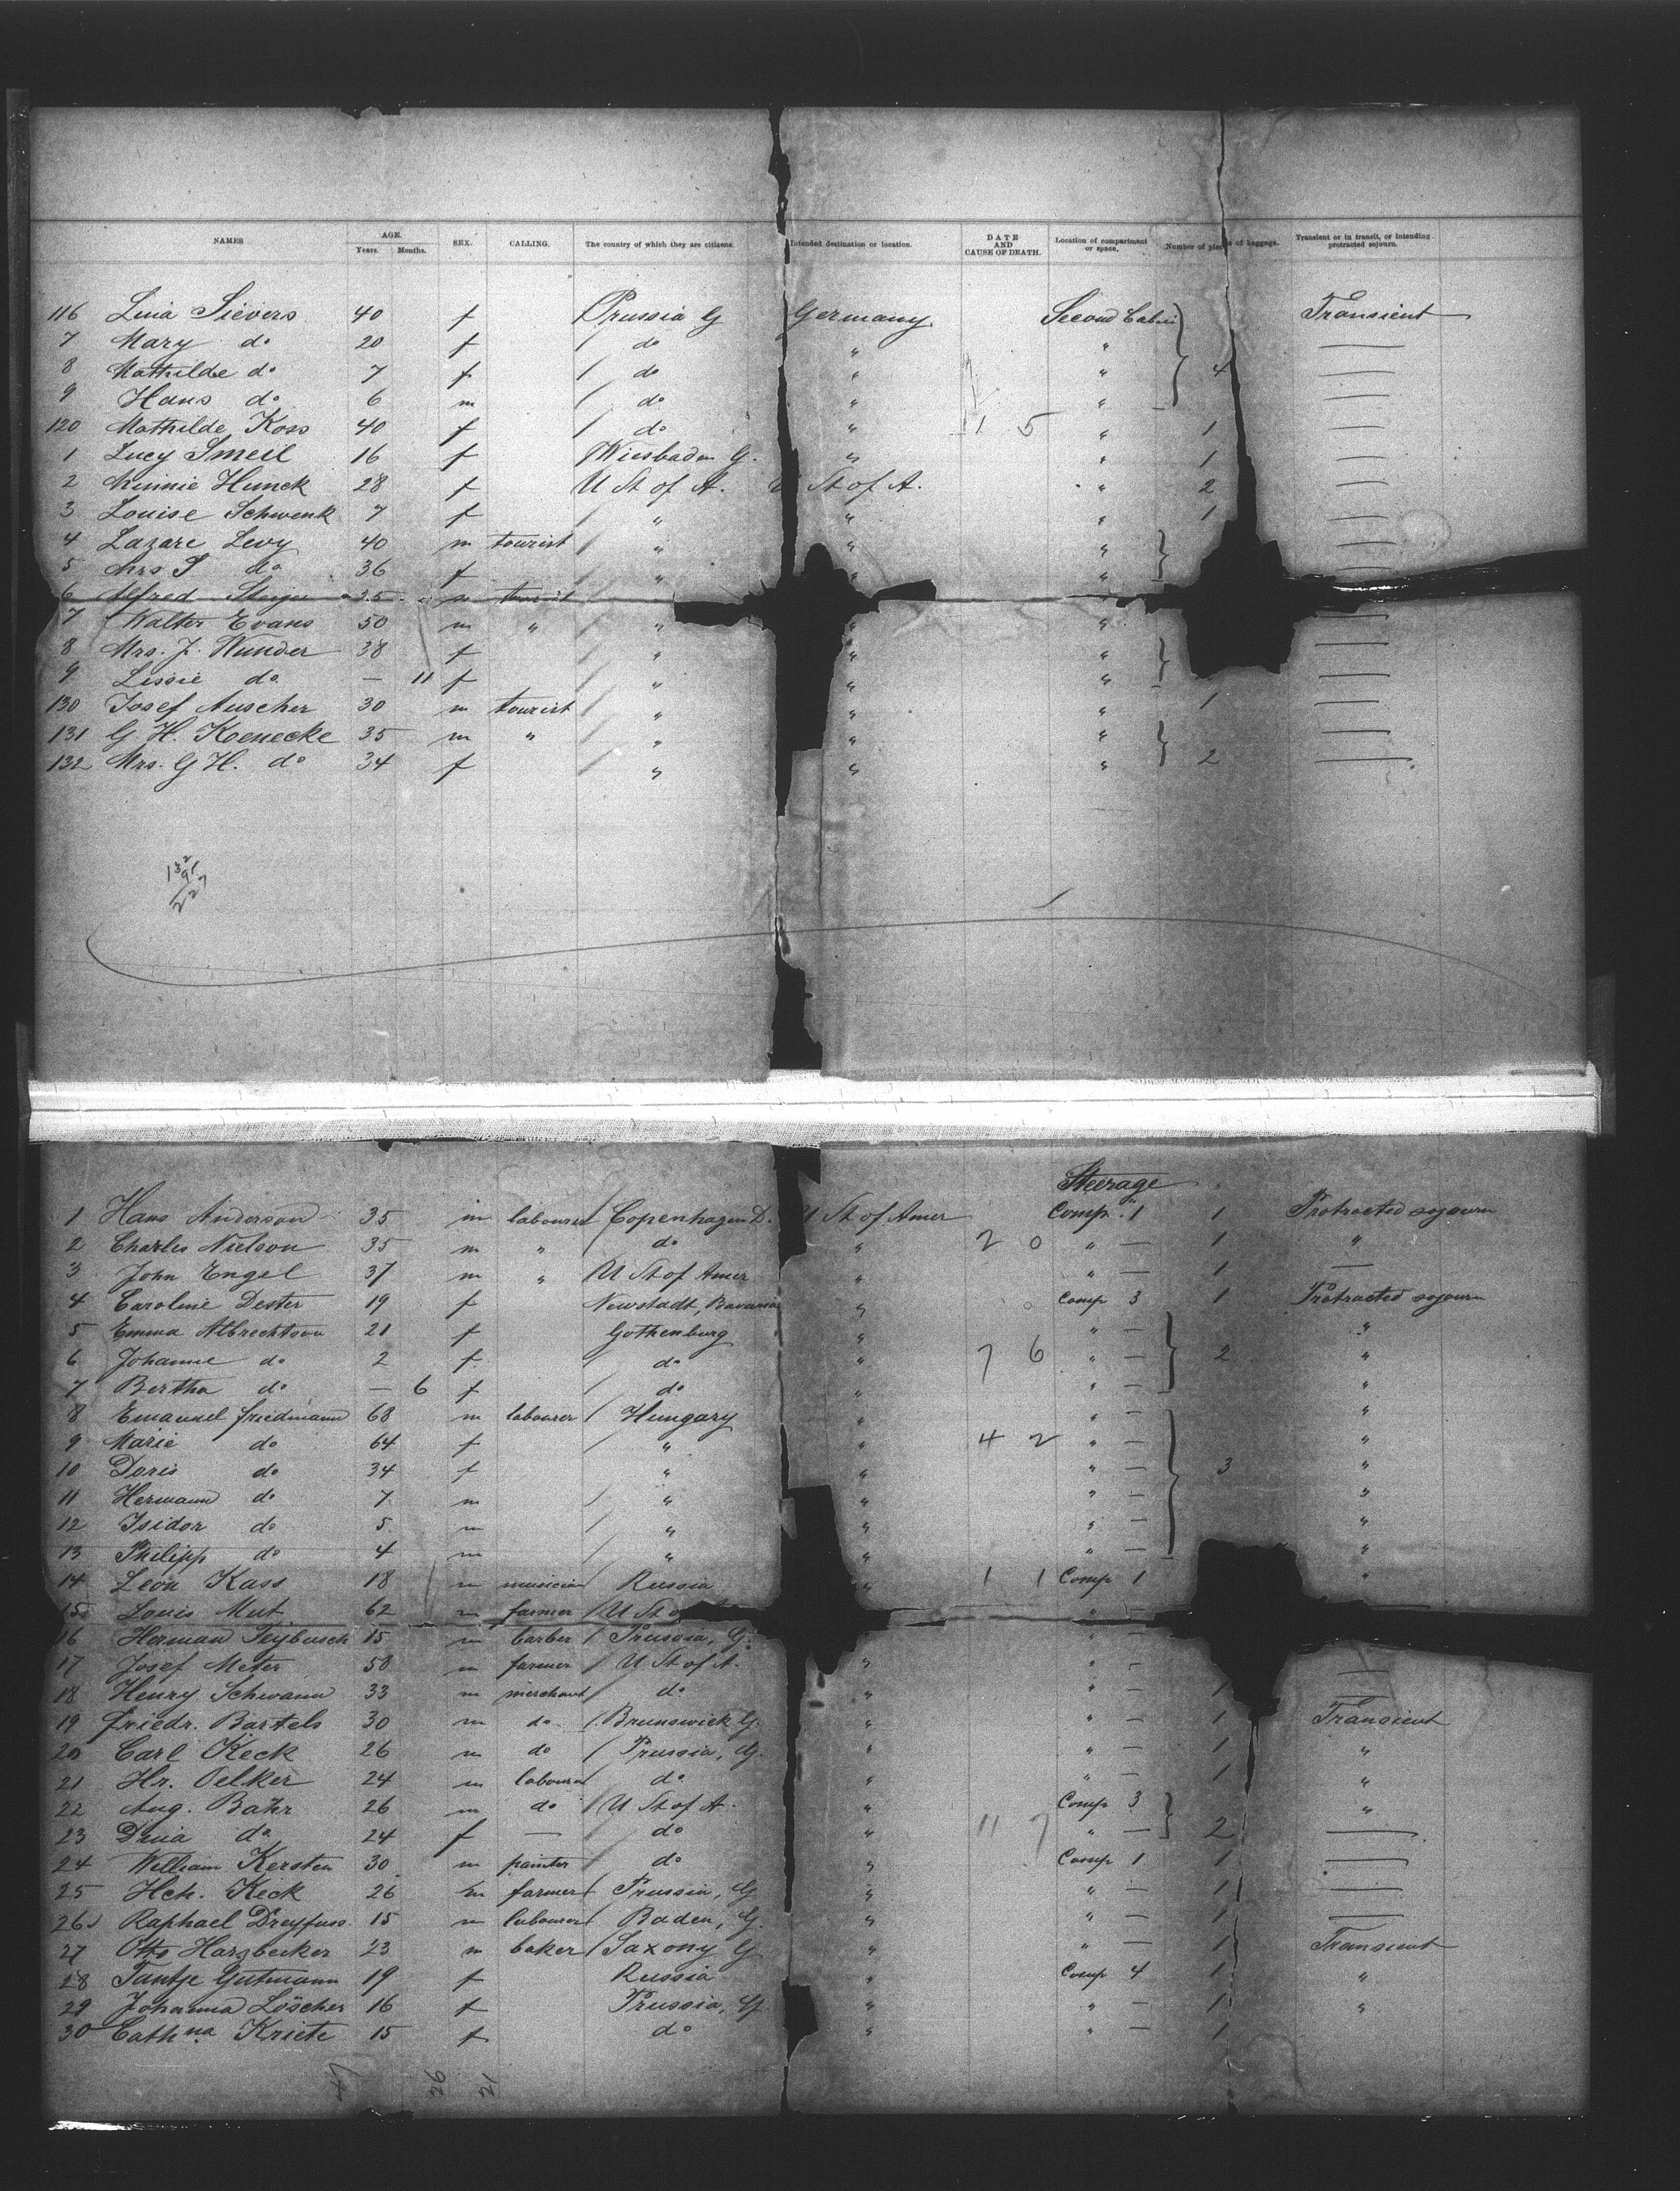 NAMES AGE. Years. Months. SEX. CALLING. The country of which they are citizens. Intended destination or location. DATE AND CAUSE OF DEATH. Location of compartment or space. Number of pieces of baggage. Transient or in transit, or intending protracted sojourn.
116 Lina Sievers 40 f Prussia G Germany Second Cabin Transient
7 Mary do 20 f / do " " —
8 Mathilde do 7 f / do " " 4 —
9 Hans do 6 m / do " " —
120 Mathilde Koss 40 f / do " 1 5 " 1 —
1 Lucy Smeil 16 f Wiesbaden G. " " 1 —
2 Minnie Hunck 28 f U St of A. U St of A. " 2 —
3 Louise Schwenk 7 f / " " " 1 —
4 Lazare Levy 40 m tourist / " " " —
5 Mrs. S do 36 f " " " —
6 Alfred 35 m tourist /
7 Walter Evans 50 m " / " " " —
8 Mrs. J. Wunder 38 f " " " —
9 Lissie do — 11 f " " " —
130 Josef Auscher 30 m tourist / " " " 1 —
131 G. H. Koenecke 35 m " / " " " —
132 Mrs. G H. do 34 f / " " " 2 —
132
91
227
Steerage
1 Hans Anderson 35 m labourer / Copenhagen D. U St of Amer Comp. 1 1 Protracted sojourn
2 Charles Nielson 35 m " / do " 2 0 " — 1 "
3 John Engel 37 m " / U St of Amer " " — 1 —
4 Caroline Dester 19 f Newstadt, Bavaria " Comp 3 1 Protracted sojourn
5 Emma Albrechtson 21 f Gothenburg " " — "
6 Johanne do 2 f / do " 7 6 " — 2 "
7 Bertha do — 6 f / do " " —
8 Emanuel Friedmann 68 m labourer / Hungary " — "
9 Marie do 64 f / " " 4 2 " — "
10 Doris do 34 f " " " — 3 "
11 Hermann do 7 m / " " " — "
12 Isidor do 5 m / " " " — "
13 Philipp do 4 m / " " " — "
14 Leon Kass 18 m musician / Russia " 1 1 Comp 1 "
15 Louis Mut 62 m farmer / U St " —
16 Herman Teybusch 15 m barber / Prussia, G. " —
17 Josef Meter 58 m farmer / U St of A. " " — —
18 Henry Schwann 33 m merchant / do " " — 1 —
19 Friedr. Bartels 30 m do / Brunswick G. " " — 1 Transient
20 Carl Keck 26 m do / Prussia, G. " " — 1 "
21 Hr. Oelker 24 m labourer do " " — 1 "
22 Aug. Bahr 26 m do / U St of A. " Comp 3 "
23 Dina do 24 f — / do " 11 7 " — 2 —
24 William Kersten 30 m painter / do " Comp 1 1 —
25 Hch. Keck 26 m farmer / Prussia, G " " — 1 —
26 Raphael Dreyfuss. 15 m labourer / Baden, G. " " — 1 —
27 Otto Harzbecker 23 m baker / Saxony G " " — 1 Transient
28 Tantje Gutmann 19 f Russia " Comp 4 1 "
29 Johanna Löscher 16 f Prussia, G. " " — 1 "
30 Cathna Kriete 15 f do " " — 1
47 26 21